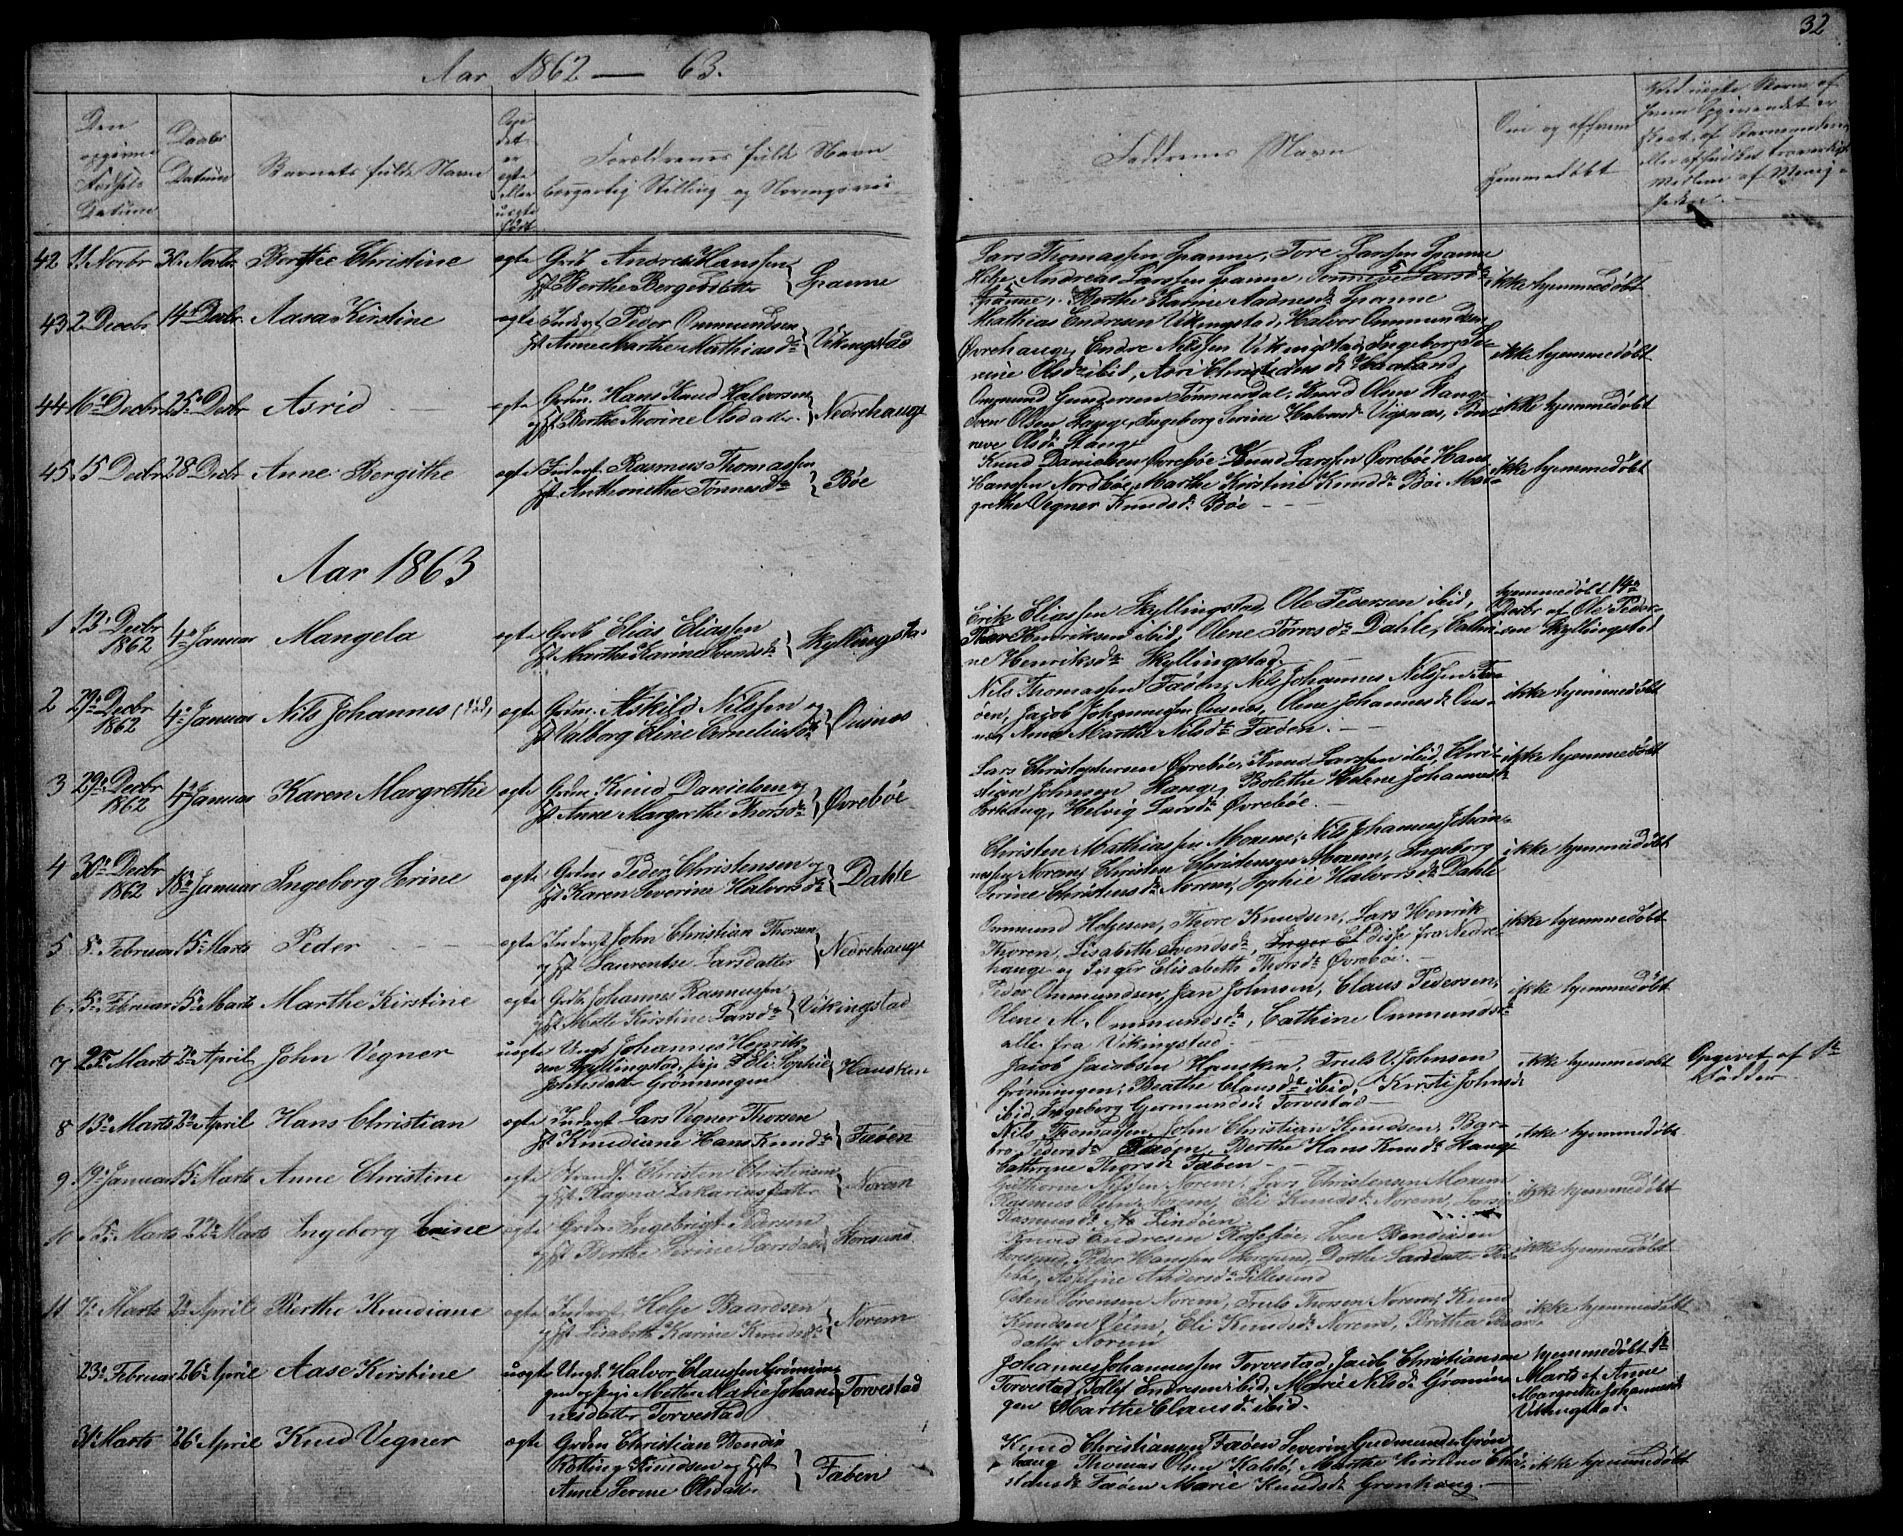 32
Aar 1862 — 63.
Den opgivne Fødsels Datum
Daabs Datum
Barnets fulde Navn
Om det er ægte eller uægte født
Forældrenes fulde Navn
borgerlig Stilling og Næringsvei
Faddrenes Navn
Om og af hvem
hjemmedøbt
42 11 Novbr 30 Novbr Berthe Christine ægte Grdb Andreas Hanssen
Hst Berthe Bergesdatter } Spanne
Lars Thomassen Spanne, Tore Larssen Spanne
Helge Andreas Larssen Spanne,
Spanne, Berthe Karine Rasmusdr Spanne
ikke hjemmedøbt
43 2 Decbr 14 Decbr Aasa Kirstine ægte Inderst Peder Ommundsen
Hst Anne Marthe Mathiasdr } Vikingstad
Mathias Endresen Vikingstad, Halvor Ommundsen
Øvrehauge, Endre Nilssen Vikingstad, Ingeborg Se-
rine Olsdr ibid,
ikke hjemmedøbt
44 16 Decbr 25 Decbr Asrid ægte Grdm. Hans Knud Halvorsen
og Hst Berthe Thorine Olsdatter } Nedrehauge
Ommund Gunnersen Tommerdal, Knud Olsen Hauge
Sven Olsen Hauge, Ingeborg Serine Halvorsdr Vigsnæs, Tor-
neve Olsdr Hauge
ikke hjemmedøbt
45 15 Decbr 28 Decbr Anne Bergithe ægte Inderst Rasmus Thomassen
Hst Anthonette Tønnesdr } Bøe
Knud Danielsen Øvrebøe, Knud Larssen Øvrebøe Hans
Hansen Nordbøe, Marthe Kirstine Knudsdr Bøe Mar-
grethe Vegner Knudsdr Bøe
ikke hjemmedøbt
Aar 1863
1 12 Decbr 1862 4 Januar Mangela ægte Grdb Elias Eliassen
Hst Marthe Karine Svendsdr } Skyllingstad
Erik Eliassen Skyllingstad, Ole Pedersen ibid,
Thore Henriksen ibid, Olene Tørresdr Dahle, Cathri-
ne Henriksdr Skyllingstad
hjemmedøbt 14de
Decbr af Ole Peder-
sen Skyllingstad
2 29 Decbr 1862 4 Januar Nils Johannes (død) ægte Grdm. Askild Nilssen og
Hst Valborg Eline Corneliusdr } Ousnes
Nils Thomassen Fæøen, Nils Johannes Nilssen Fæ-
øen, Jacob Johannessen Ousnæs, Olene Johannesdr Ous-
næs, Anne Marthe Nilsdr Fæøen
ikke hjemmedøbt
3 29 Decbr 1862 4 Januar Karen Margrethe ægte Grdm Knud Danielsen og
Hst Anne Margrethe Thorsdr } Øvrebøe
Lars Christophersen Øvrebøe, Knud Larssen ibid, Chri-
stian Johnsen Hauge, Bolethe Helene Johannesdr
Helvig Larsdr Øvrebøe
ikke hjemmedøbt
4 30 Decbr 1862 18 Januar Ingeborg Serine ægte Grdm Peder Christensen og
Hst Karen Severine Halvorsdr } Dahle
Christen Mathiassen Norem, Nils Johannes Johan-
nessen Norem, Christen Christensen Norem, Ingeborg
Serine Christensdr Norem, Sophie Halvorsdr Dahle
ikke hjemmedøbt
5 8 Februar 15 Marts Peder ægte Inderst John Christian Thorsen
og Hst Laurentse Larsdatter } Nedrehauge
Ommund Helgesen, Thore Knudsen, Lars Henrik
Thorsen, Lisabeth Svendsdr, Inger El disse fra Nedre-
hauge og Inger Elisabeth Thorsdr Øvrebøe.
ikke hjemmedøbt
6 5 Februar 15 Marts Marthe Kirstine ægte Grdb. Johannes Rasmussen
Hst Mette Kirstine Larsdr } Vikingstad
Peder Ommundsen, Jan Johnsen, Claus Pedersen,
Olene M. Ommundsdr, Cathrine Ommundsdr
alle fra Vikingstad
ikke hjemmedøbt
7 25 Marts 2 April John Vegner uægte Ungk Johannes Henrik-
sen Skyllingstad, pige Eli Sophie
Johnsdatter Grønningen } Hausken
Jacob Jacobsen Hausken, Truls V. Johnsen
Grønningen, Beathe Clausdr ibid, Kirsti Johnsdr
ibid, Ingeborg Gjermundsdr Torvestad
ikke hjemmedøbt
Opgivet af
Fadder
8 13 Marts 2 April Hans Christian ægte Inderst Lars Vegner Thorsen
Hst Knudiane Hans Knudsdr } Fæøen
Nils Thomassen, John Christian Knudsen, Bar-
bro Pedersdr Fæøen, Berthe Hans Knudsdr Hauge
Cathrine Thorsdr Fæøen
ikke hjemmedøbt
9 19 Januar 15 Marts Anne Christine ægte Christen Christensen
og Hst Ragna Zakariasdatter } Norem
Guttorm Nilssen Norem, Lars Christensen Norem
Rasmus Olsen Norem, Eli Knudsdr Norem,
Rasmusdr N. Lindøen
ikke hjemmedøbt
10 15 Marts 22 Marts Ingeborg Serine ægte Grdm Ingebrigt Larsen
og Hst Berthe Serine Larsdatter } Storesund
Knud Endresen Røssebøe, Sven Bendixsen
Storesund, Peder Hanssen Storesund, Dorthe Larsdatter
Aseline Andersdr Lillesund
ikke hjemmedøbt
11 7 Marts 2 April Berthe Knudiane ægte Inderst Helje Baardsen
og Hst Lisabeth Karine Knudsdr } Norem
Osten Sørensen Norem, Truls Thorsen Norem, Knud
Knudsen Veim, Eli Knudsdr Norem, Brittha Baar-
datter Norem
ikke hjemmedøbt
23 Februar 26 April Aase Kirstine uægte Ungk. Halvor Claussen Grønnin-
gen og Pige Mette Malie Johan-
nesdatter Torvestad } Torvestad
Johannes Johannessen Torvestad, Jacob Christiansen
Torvestad, Tollef Endresen ibid, Marie Nilsdr Grønnin-
gen Marthe Clausdr ibid.
hjemmedøbt
Marts af Anne
Margrethe Johannesdr
Vikingstad.
31 Marts 26 April Knud Vegner ægte Grdm Christian Bendix
Rølling Knudsen og Hst
Anne Serine Olsdatter } Fæøen
Knud Christiansen Fæøen Severin Gudmundsen Grøn-
haug Thomas Olsen Kalstø, Marthe Kirstine Chri-
stensdr Fæøen Marie Knudsdr Grønhaug.
ikke hjemmedøbt